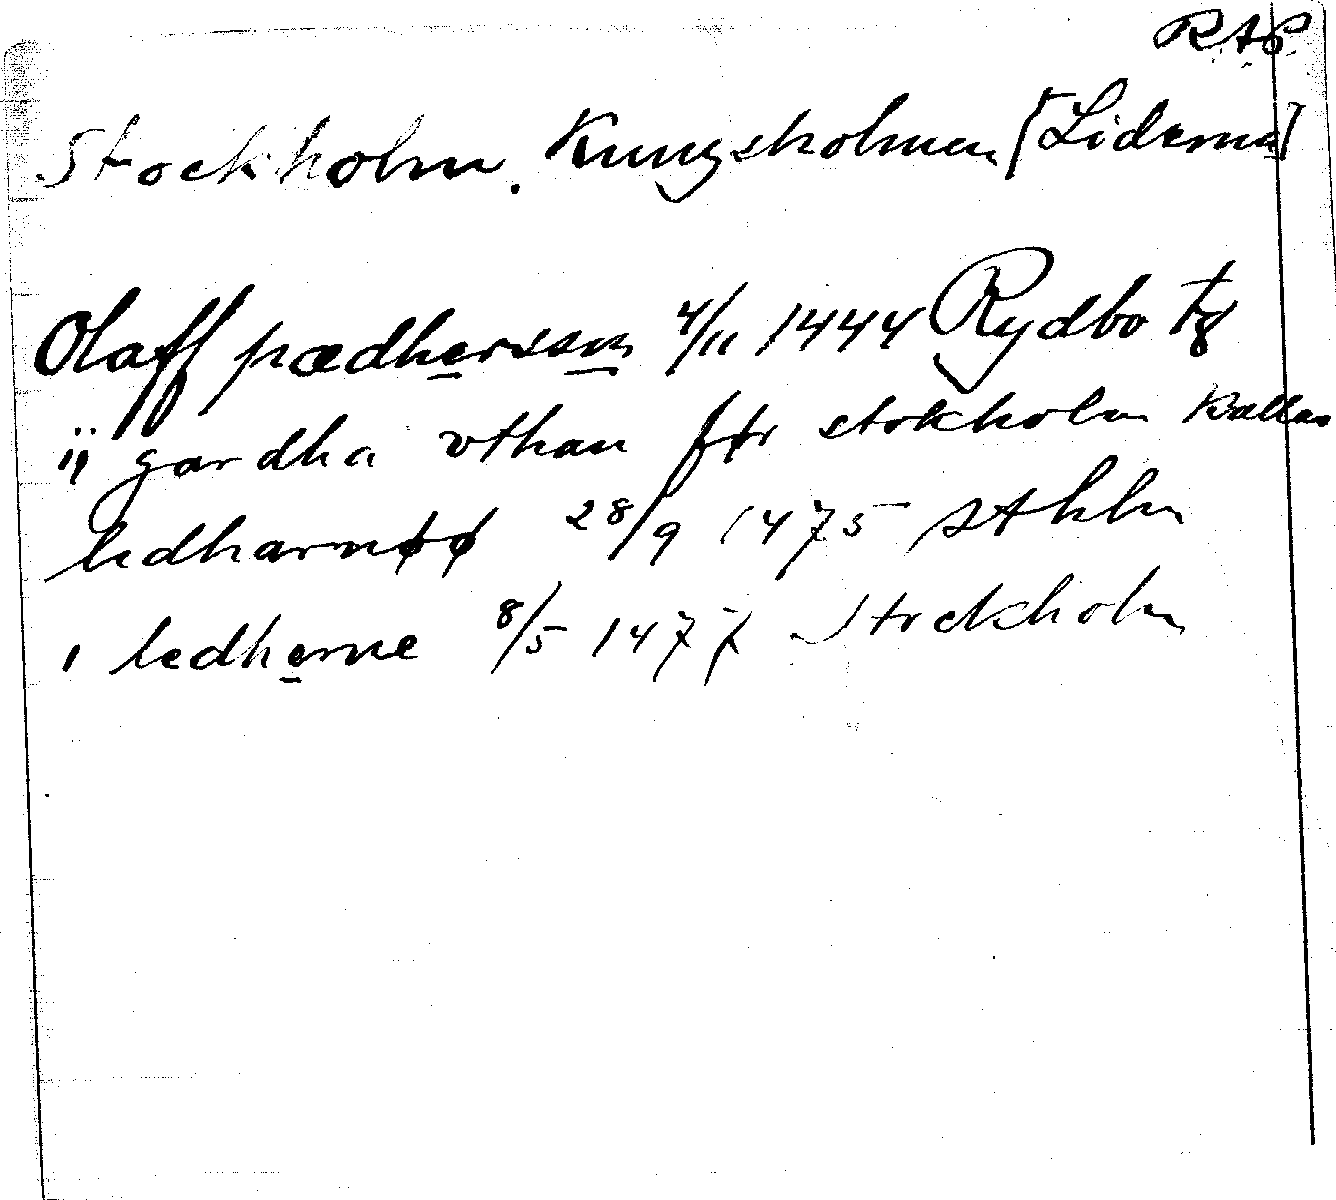 RAP
Stockholm. Kungsholmen [Liderna]
Olaff pædhersson 4/11 1444 Rydbo tg
ij gardha vthan før stokholm kallas
ledharnøø 28/9 1475 Sthlm
i ledherne 8/5 1477 Stockholm